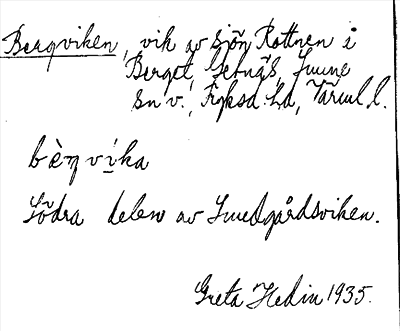 Bergviken, vik av sjön Rottnen i
Berget, Getnäs, Sunne
sn v., Fryksd. hd, Värml. l.
bèŋ vi̱ka
Södra delen av Smedgårdsviken.
Greta Hedin 1935.